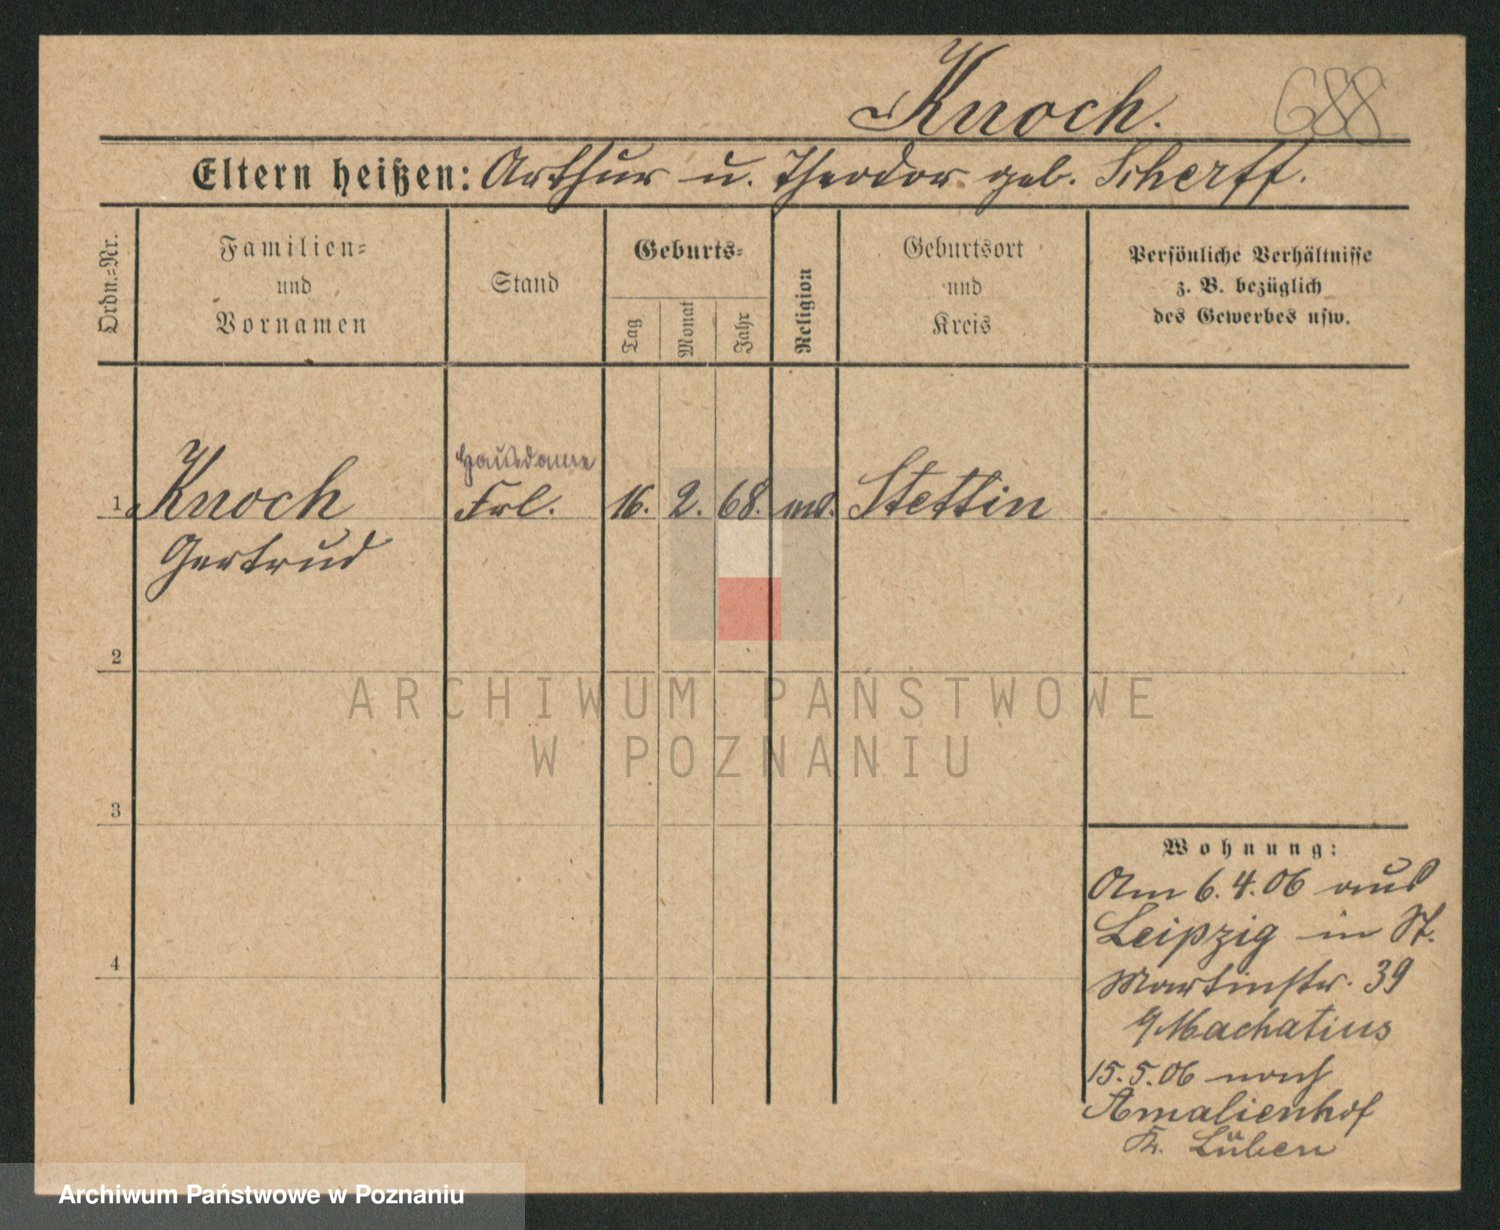 Knoch. 688
Eltern heißen: Arthur u. Theodor geb. Scherff.
Ordn.=Nr.
Familien=
und
Vornamen
Stand
Geburts=
Tag
Monat
Jahr
Religion
Geburtsort
und
Kreis
Persönliche Verhältnisse
z. B. bezüglich
des Gewerbes usw.
Hausdame
1 Knoch Frl. 16. 2. 68. Stettin
Gertrud
2
3
4
Wohnung:
Am 6.4.06 aus
Leipzig in St.
Martinstr. 39
Machatius
15.5.06 nach
Amalienhof
Lüben
ARCHIWUM PAŃSTWOWE
W POZNANIU
Archiwum Państwowe w Poznaniu